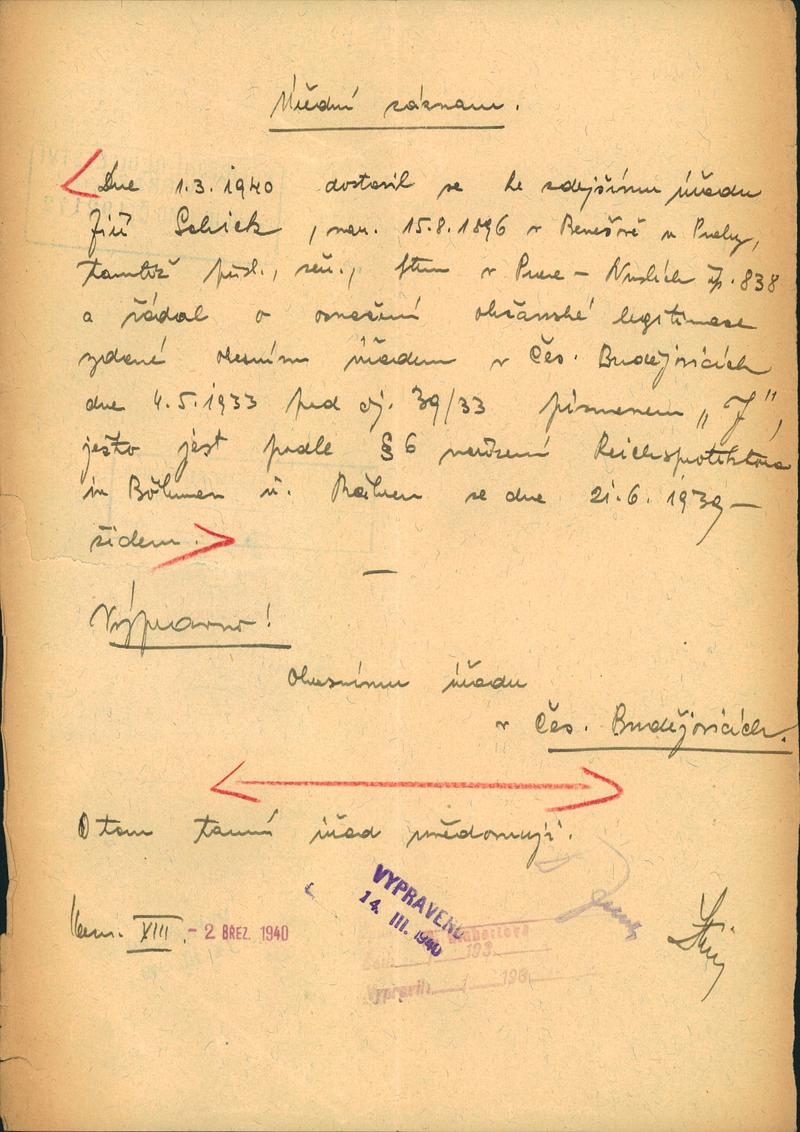 Úřední záznam.
Dne 1.3.1940 dostavil se ke zdejšímu úřadu
Jiří Schick, nar. 15.8.1896 v Benešově u Prahy,
tamtéž přísl., žen., v Praze – Nuslích čp. 838
a žádal o označení občanské legitimace
vydané okresním úřadem v Čes. Budějovicích
dne 4.5.1933 pod čj. 39/33 písmenem „J",
ježto jest podle § 6 nařízení Reichsprotektora
in Böhmen u. Mähren ze dne 21.6.1939 –
židem.
–
Výpravno!
Okresnímu úřadu
v Čes. Budějovicích.
O tom tamní úřad uvědomuji.
XIII. - 2 BŘEZ. 1940
VYPRAVENO
14. III. 1940
193
Vypravil: 193